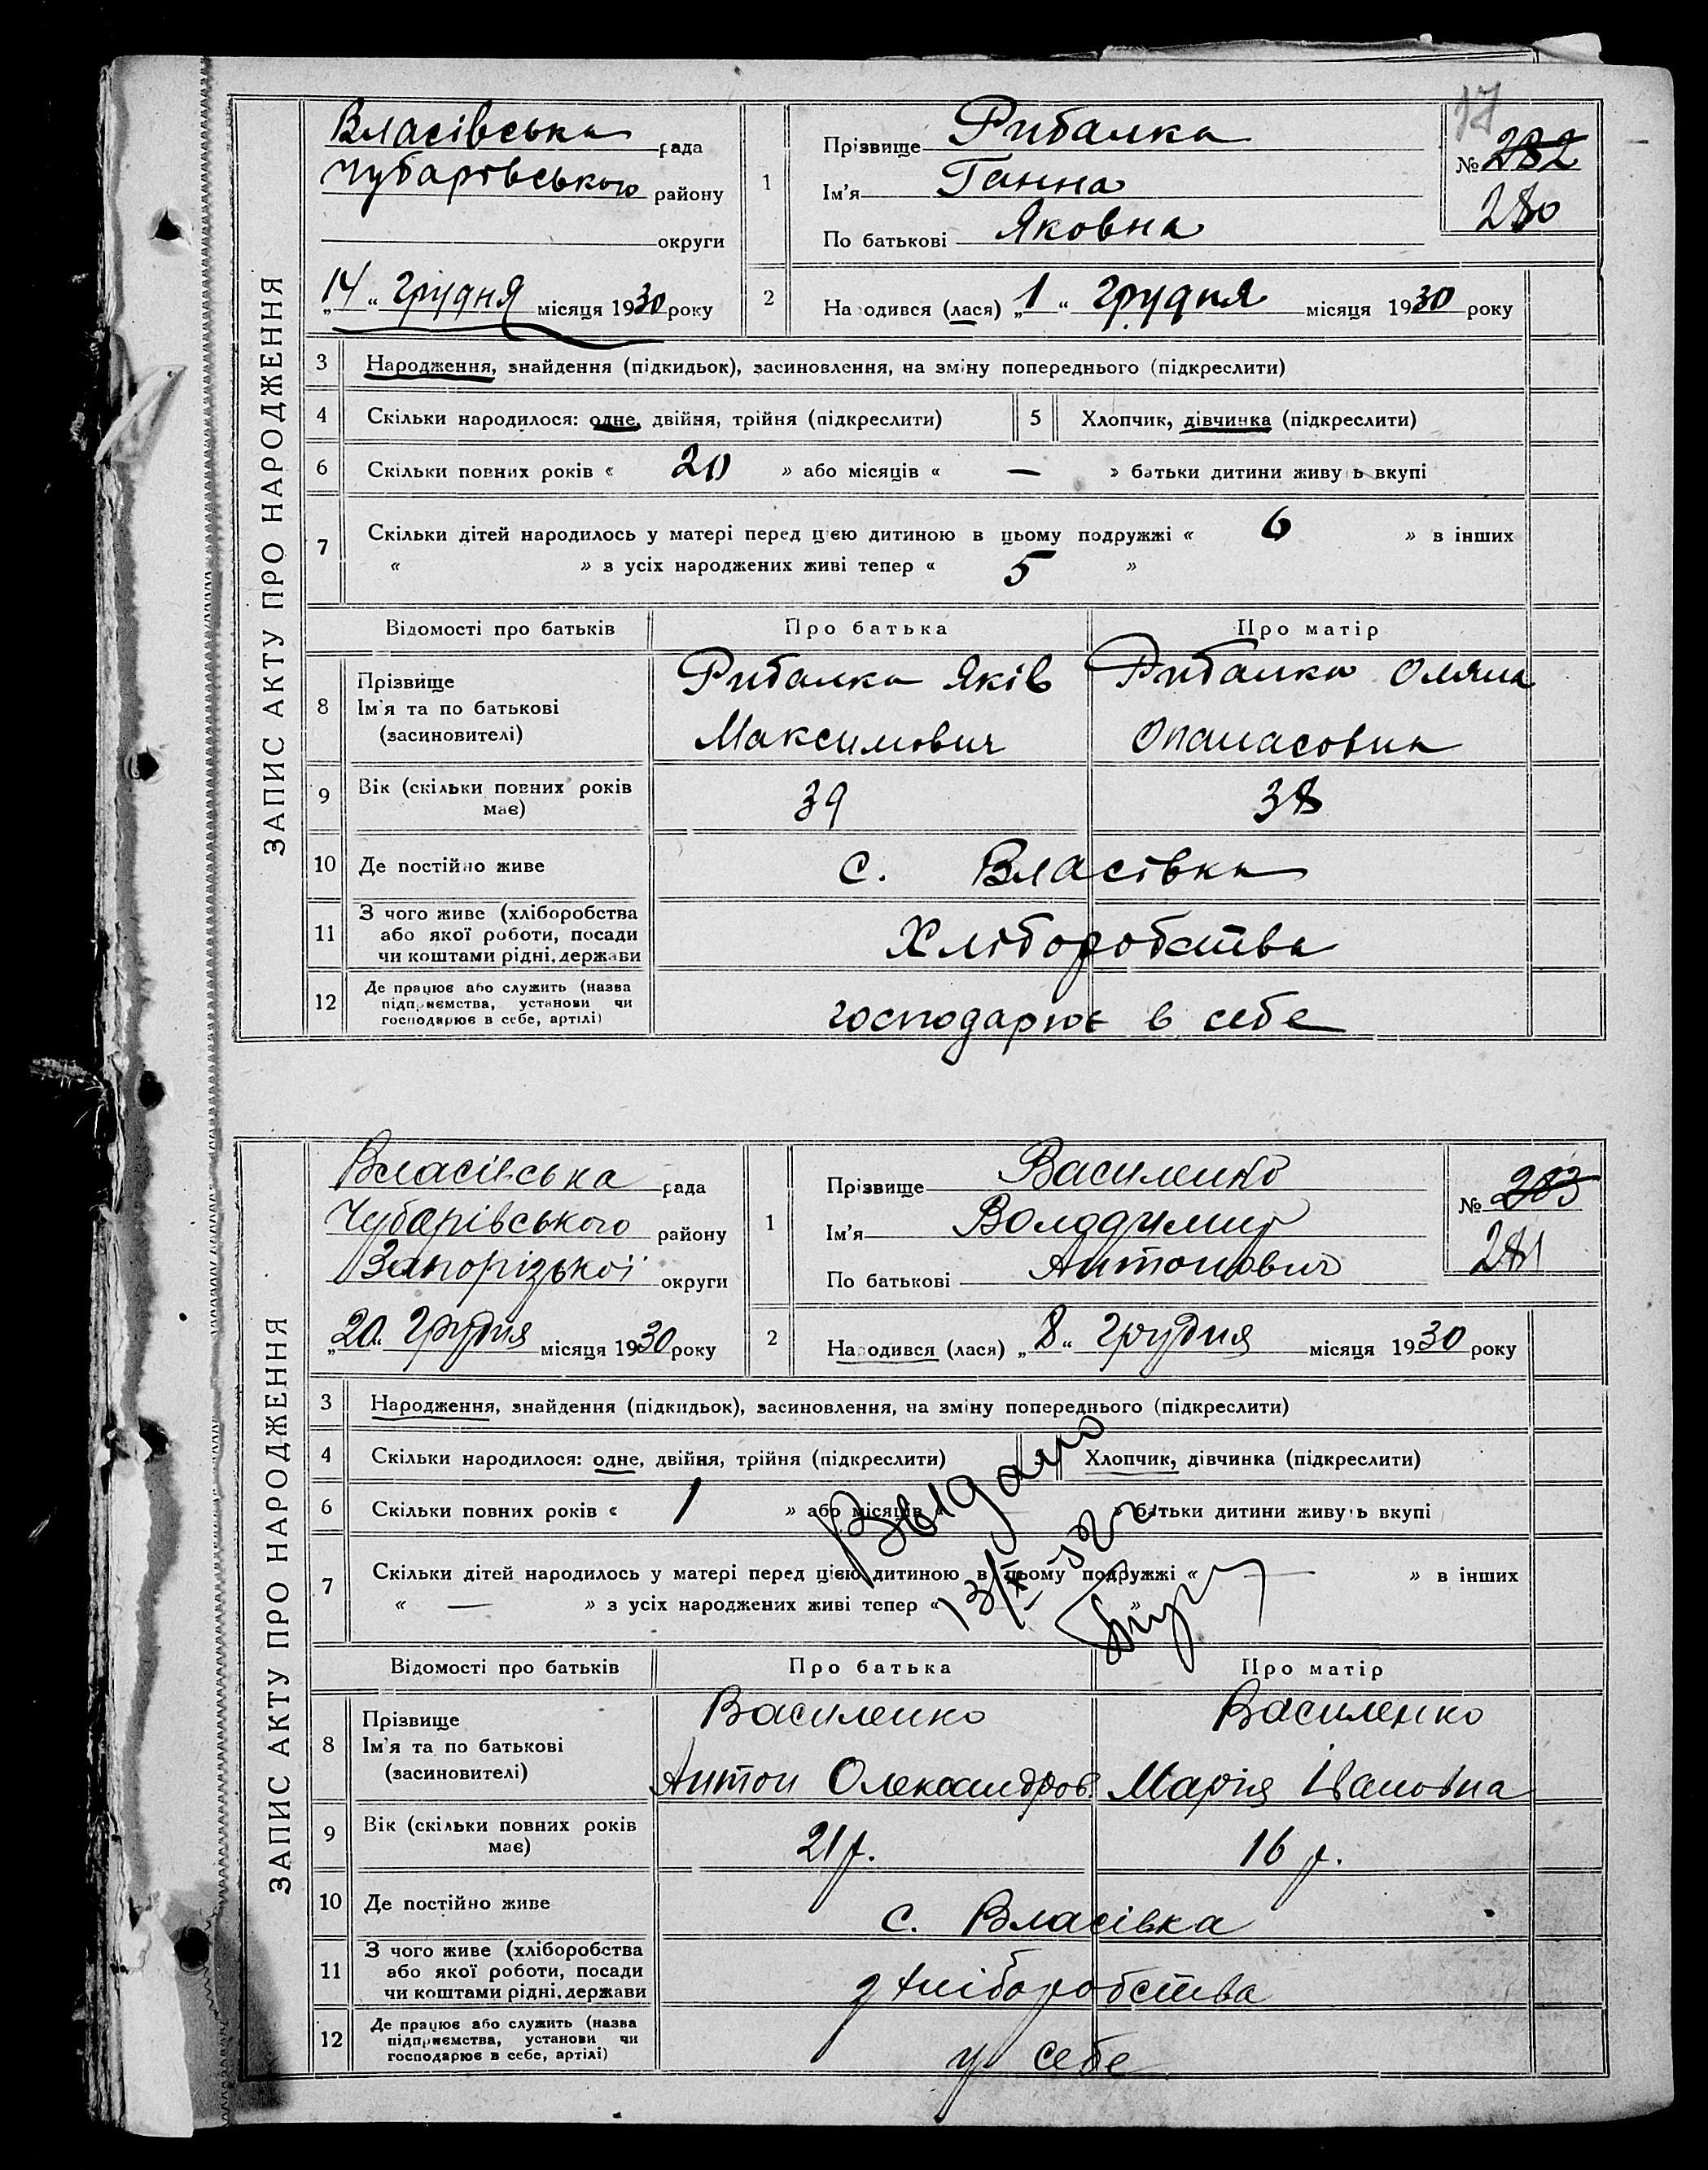 17
ЗАПИС АКТУ ПРО НАРОДЖЕННЯ
Власівська рада
Чубарівського району
округи
„14“ грудня місяця 1930 року
1
Прізвище Рибалка
Ім'я Ганна
По батькові Яковна
№ 282
280
2 Народився (лася) „1“ грудня місяця 1930 року
3 Народження, знайдення (підкидьок), засиновлення, на зміну попереднього (підкреслити)
4 Скільки народилося: одне, двійня, трійня (підкреслити) 5 Хлопчик, дівчинка (підкреслити)
6 Скільки повних років « 20 » або місяців « — » батьки дитини живуть вкупі
7 Скільки дітей народилось у матері перед цією дитиною в цьому подружжі « 6 » в інших
« » з усіх народжених живі тепер « 5 »
Відомості про батьків Про батька Про матір
8 Прізвище
Ім'я та по батькові
(засиновителі)
Рибалка Яків
Максимович
Рибалка Оляна
Опанасовна
9 Вік (скільки повних років має) 39 38
10 Де постійно живе с. Власівка
11 З чого живе (хліборобства
або якої роботи, посади
чи коштами рідні, держави
Хліборобства
12 Де працює або служить (назва
підприємства, установи чи
господарює в себе, артілі)
господарює в себе
ЗАПИС АКТУ ПРО НАРОДЖЕННЯ
Власівська рада
Чубарівського району
Запорізької округи
„20“ грудня місяця 1930 року
1
Прізвище Василенко
Ім'я Володимир
По батькові Антонович
№ 283
281
2 Народився (лася) „8“ грудня місяця 1930 року
3 Народження, знайдення (підкидьок), засиновлення, на зміну попереднього (підкреслити)
4 Скільки народилося: одне, двійня, трійня (підкреслити) 5 Хлопчик, дівчинка (підкреслити)
6 Скільки повних років « 1 » або місяців « » батьки дитини живуть вкупі
7 Скільки дітей народилось у матері перед цією дитиною в цьому подружжі « — » в інших
« — » з усіх народжених живі тепер « »
Відомості про батьків Про батька Про матір
8 Прізвище
Ім'я та по батькові
(засиновителі)
Василенко
Антон Олександров.
Василенко
Марія Івановна
9 Вік (скільки повних років має) 21 р. 16 р.
10 Де постійно живе с. Власівка
11 З чого живе (хліборобства
або якої роботи, посади
чи коштами рідні, держави
з хліборобства
12 Де працює або служить (назва
підприємства, установи чи
господарює в себе, артілі)
у себе